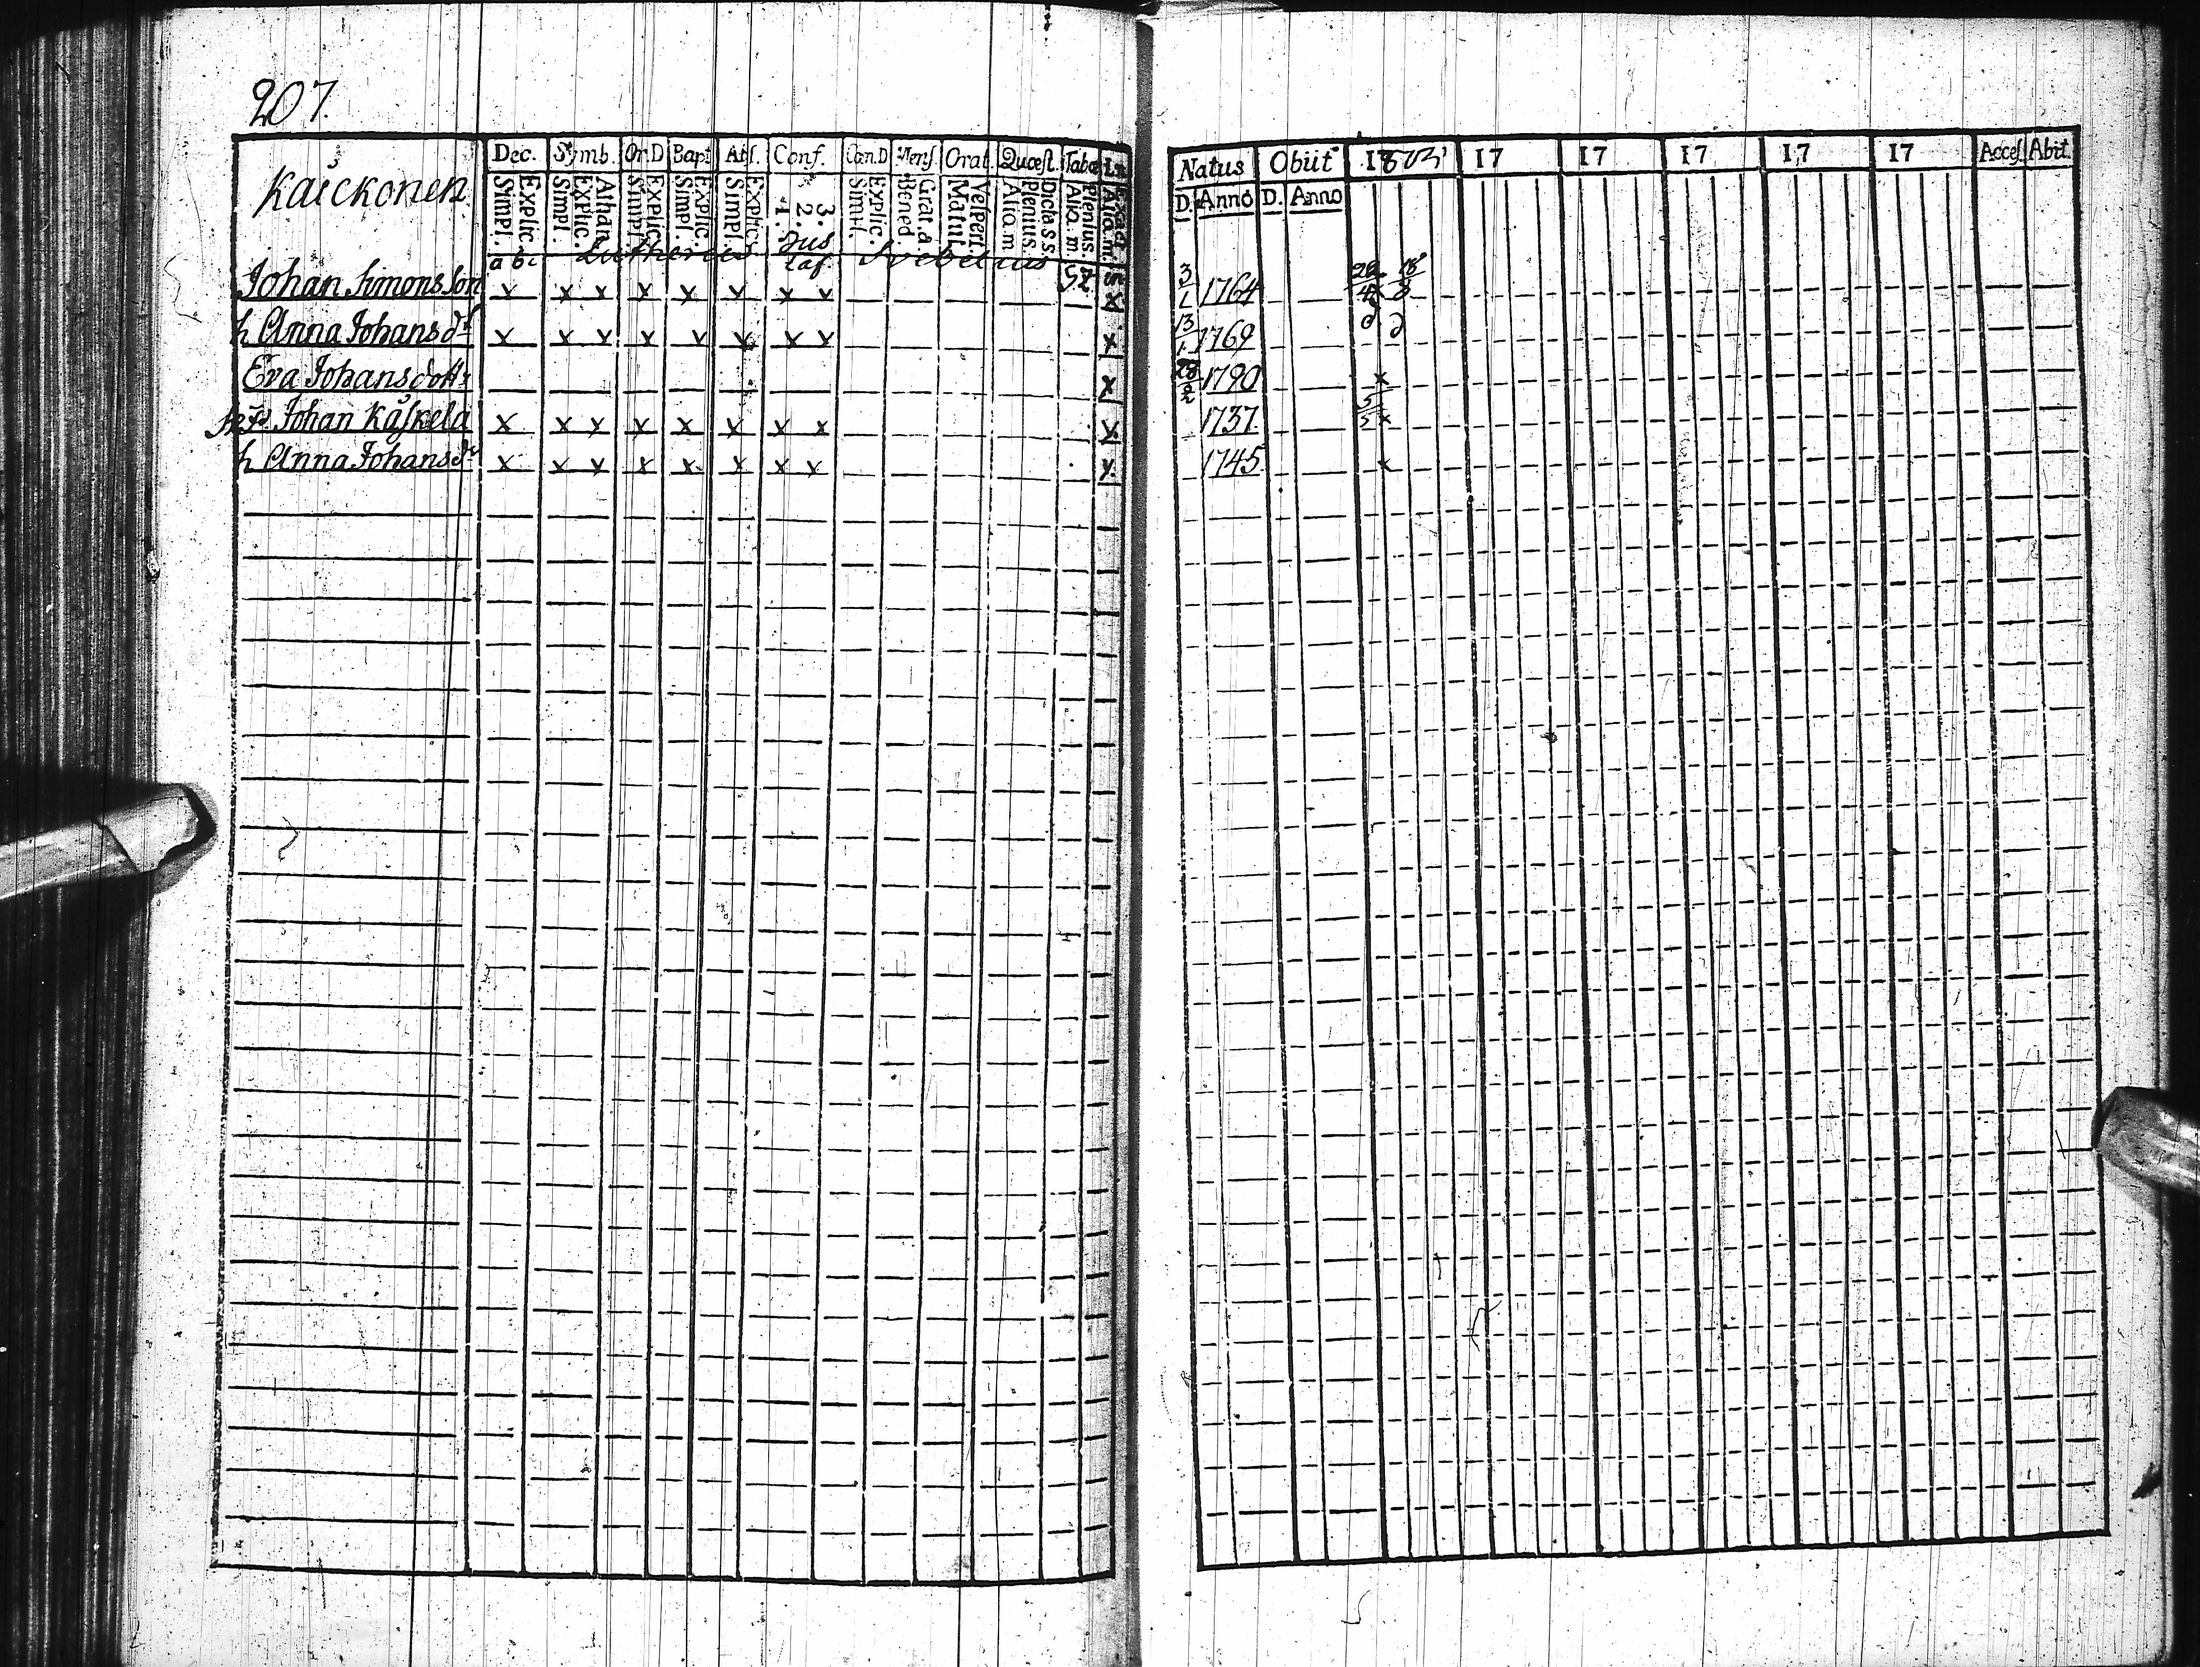 207.
Kåickonen
Dec. Symb. Or.D Bapt Abs. Conf. Can.D Mens. Orat. Quæst. Tabæ
Simpl. Explic. Simpl. Explic. Athan. Simpl. Explic. Simpl. Explic. Simpl. Explic. 1. 2. 3. Simpl. Explic. Bened. Grat. a. Matut. Vespert. Alio. m. Plenius. Dicta. s s. Alio. m. Plenius.
a b c Lutherus Svebelius
Johan Simonsson x x x x x x x x x
h Anna Johans dr x x x x x x x x x
Eva Johansdottr x
Johan Kåskela x x x x x x x x x
h Anna Johans dr x x x x x x x x x
Natus Obiit 1803 17 17 17 17 17 Acces. Abit.
D. Anno D. Anno
3/1 1764
13/1 1769
28/2 1790 x
1737 5/5 x
1745 x